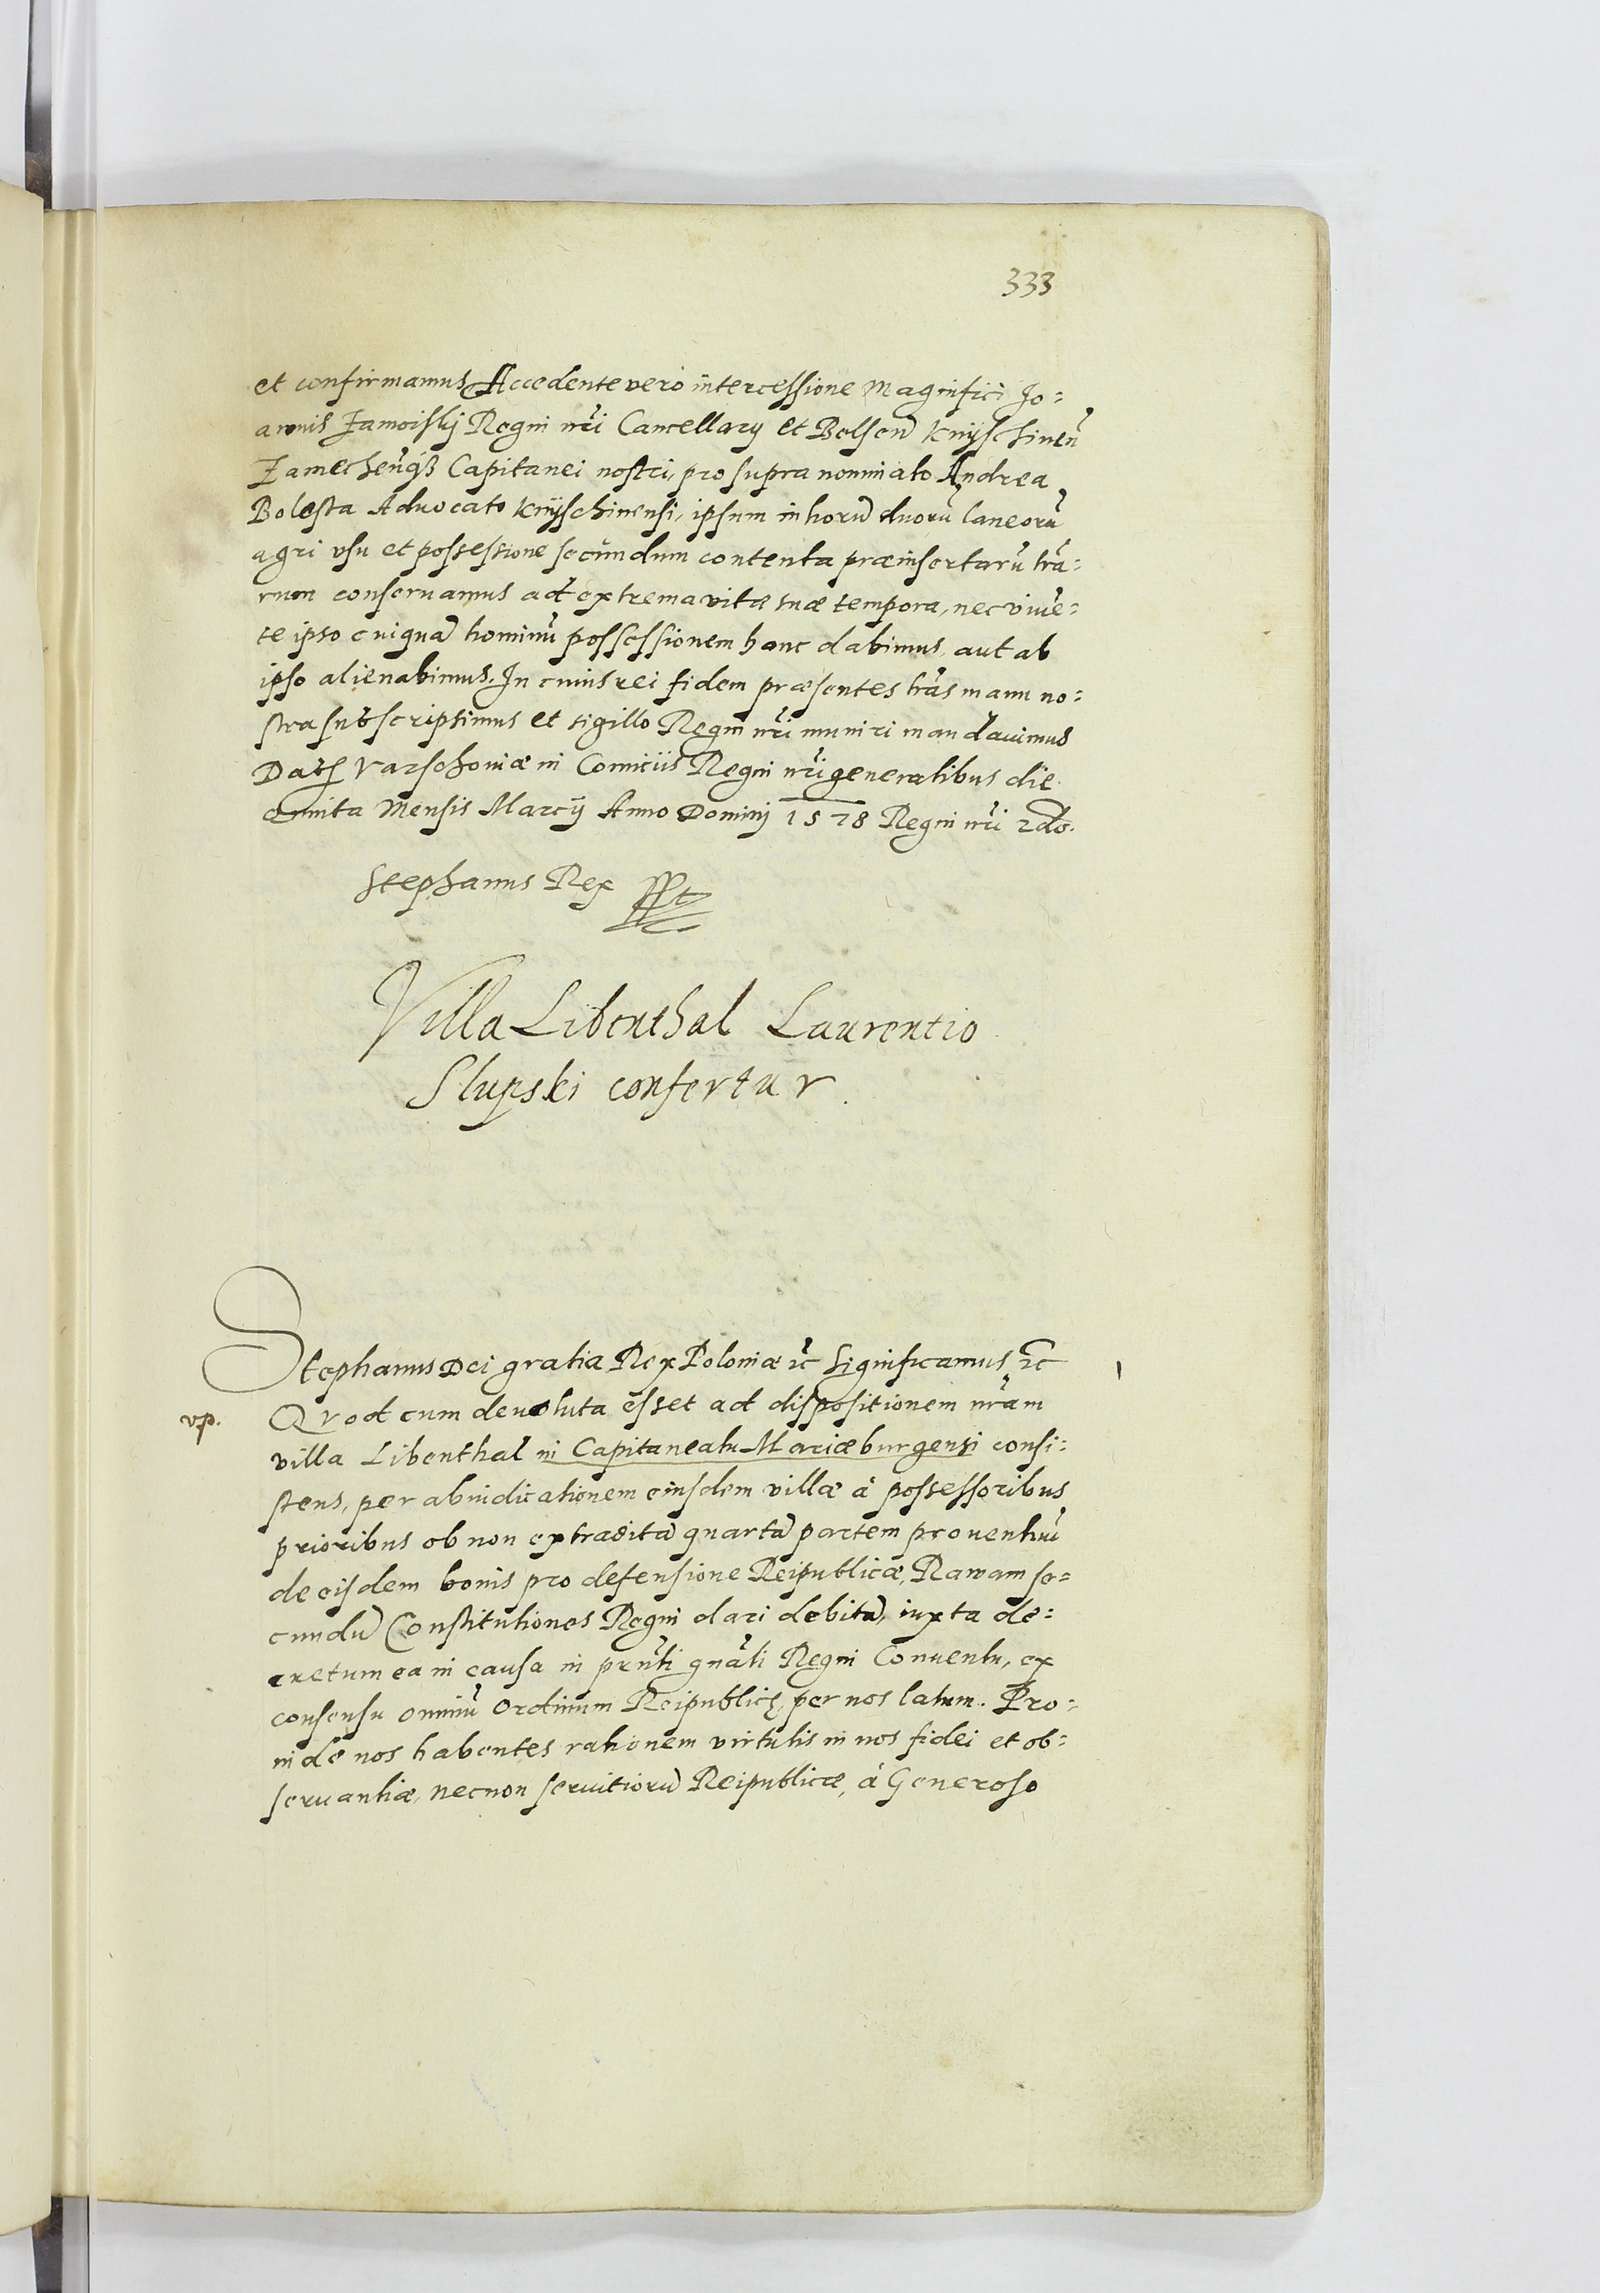 333
et confirmamus Accedente vero intercessione Magnifici Jo=
annis Zamoiskij Regni nri Cancellarij et Belsen Knijschinen
Zamechenqз Capitanei nostri, pro supra nominato Andrea
Bolesta Aduocato Knijschinensi, ipsum in horū duorū laneorū
agri vsu et possessione secundum contenta præinsertarū lrā=
rum conseruamus ad extrema vitæ suæ tempora, nec viuē=
te ipso cuiquā hominū possessionem hanc dabimus, aut ab
ipso alienabimus. In cuius rei fidem præsentes lrās manu no=
stra subscripsimus et sigillo Regni nri muniri mandauimus
Datz Varschouiæ in Comitiis Regni nri generalibus die
quinta Mensis Marcij Anno Dominj 1578 Regni nri 2do.
Stephanus Rex sspt
Villa Libenthal Laurentio
Slupski confertur.
Stephanus Dei gratia Rex Poloniæ ꝛc Significamus ꝛc
vp. Quod cum deuoluta esset ad dispositionem nrām
villa Libenthal in Capitaneatu Mariæburgensi consi=
stens, per abiudicationem eiusdem villæ à possessoribus
prioribus ob non extraditā quartā partem prouentuū
de eisdem bonis pro defensione Reipublicæ, Rawam se=
cundū Constitutiones Regni dari debitā, iuxta de=
cretum ea in causa in prnti gnāli Regni Conuentu, ex
consensu omniū Ordinum Reipublicę, per nos latum. Pro=
inde nos habentes rationem virtutis in nos fidei et ob=
seruantiæ, necnon seruitiorū Reipublicæ, à Generoso